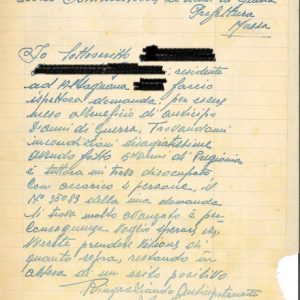 Prefettura
Massa
Io Sottoscritto
residente
ad Altagnana faccio
rispettosa domanda per essere
messo al beneficio di anticipo
Danni di Guerra, Trovandomi
in condizioni disagiatissime
avendo fatto anni di Prigionia
è tuttora mi trovo disoccupato
con accarico persone, il
No 35083 della mia domanda
si trova molto avanzato è per
conseguenza Voglio sperare
Vogliate prendere visione di
quanto sopra, restando in
attesa di un esito positivo
Ringraziando Anticipatamente